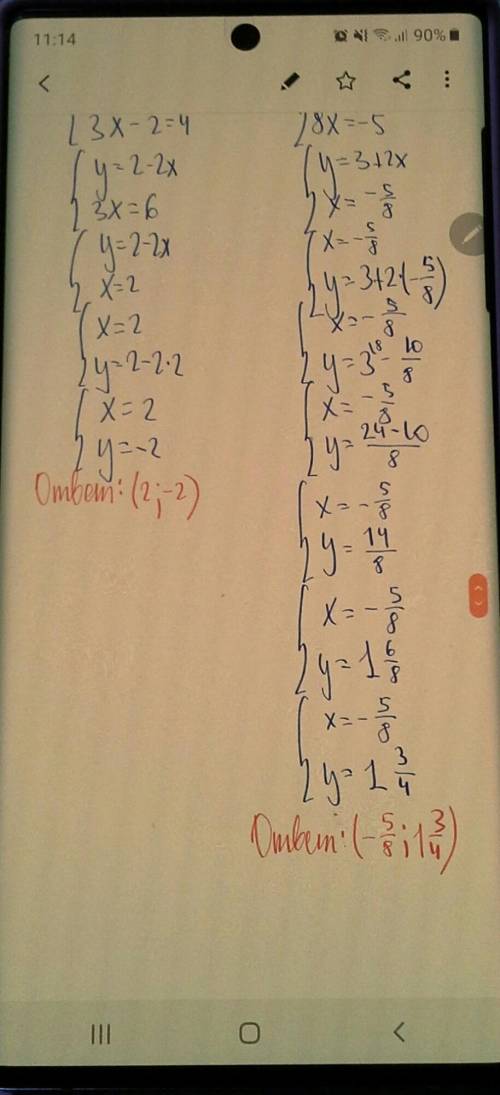 11:14
90%
3x-2=4
y=2-2x
3x=6
y=2-2x
x=2
x=2
y=2-2·2
x=2
y=-2
Ответ: (2;-2)
8x=-5
y=3+2x
x=-5/8
x=-5/8
y=3+2·(-5/8)
x=-5/8
y=3^{18}-10/8
x=-5/8
y=24-10/8
x=-5/8
y=14/8
x=-5/8
y=1 6/8
x=-5/8
y=1 3/4
Ответ: (-5/8; 1 3/4)